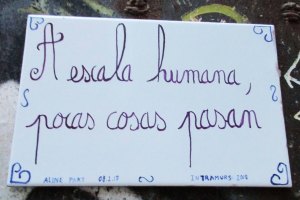 A escala humana,
pocas cosas pasan
ALONE PART 08.2.17 INTRAMURS.ONG